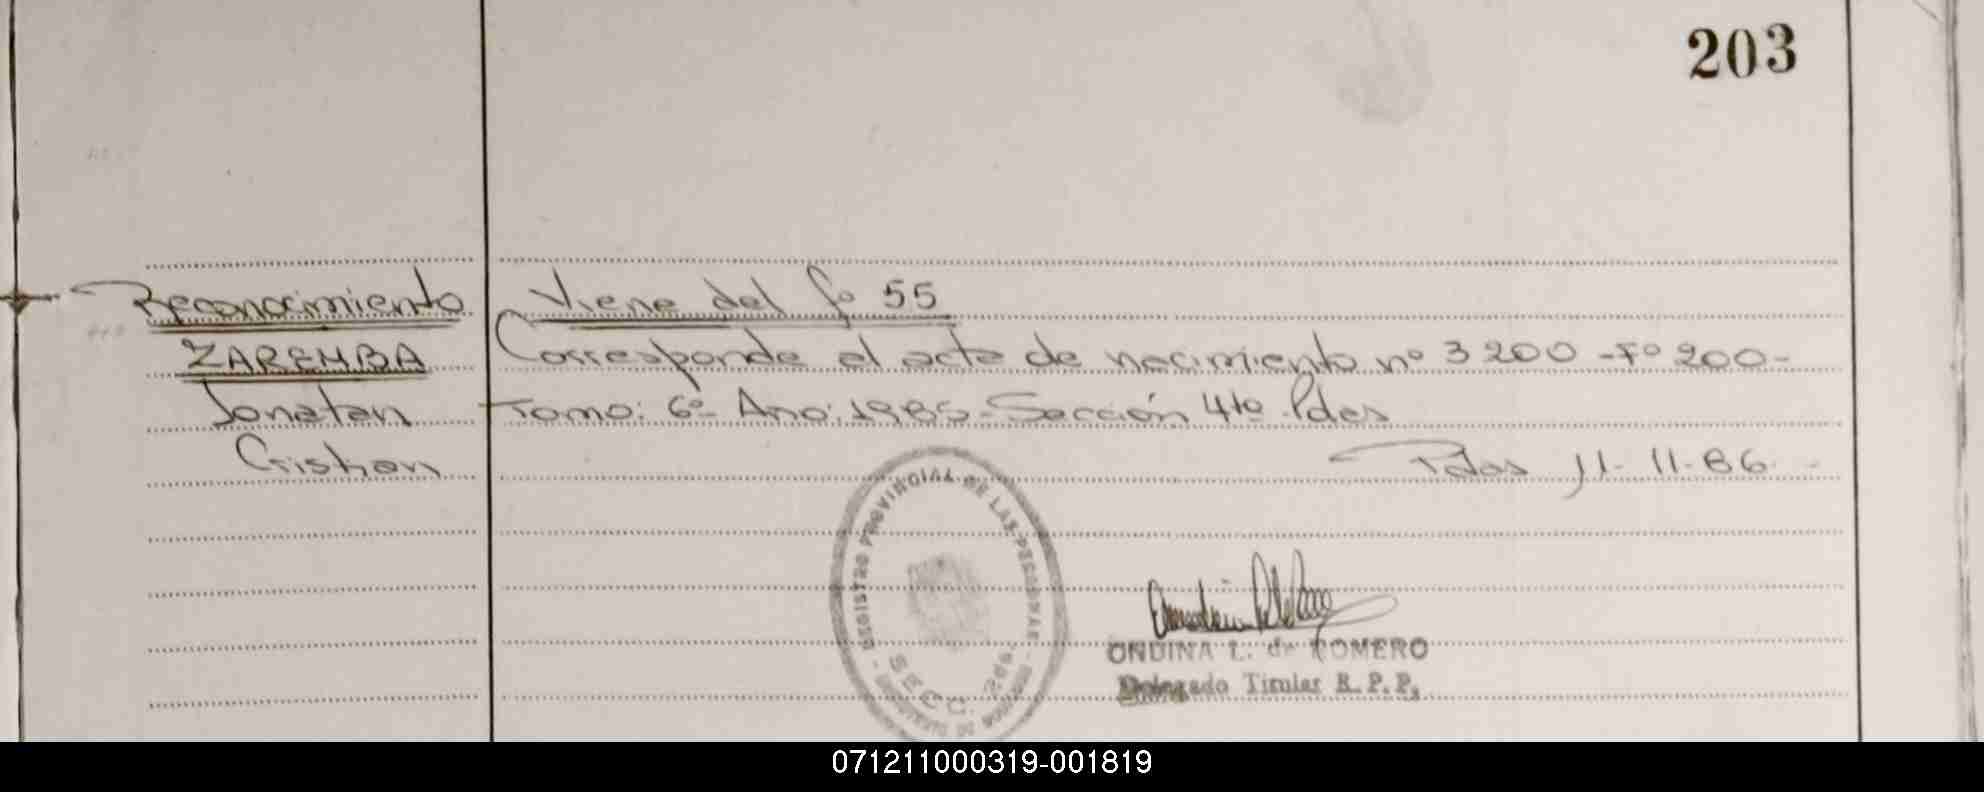 203
Reconocimiento Viene del fo 55
ZAREMBA Corresponde al acta de nacimiento nº 3200 - Fº 200 -
Jonatan Tomo: 6º - Año: 1985 - Sección 4ta Pdas
Cristian Pdas 11-11-86
REGISTRO PROVINCIAL DE LAS PERSONAS
SECC. 2da.
ONDINA L. de ROMERO
Delegado Titular R.P.P.
071211000319-001819